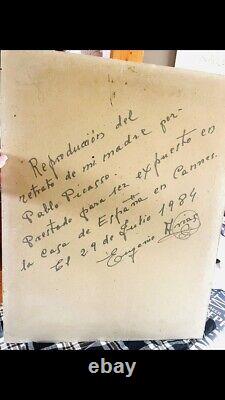 Reproducción del
retrato de mi madre por
Pablo Picasso.
Prestado para ser expuesto en
la Casa de España en Cannes.
El 29 de Julio 1984
Eugenio Arias
ebay